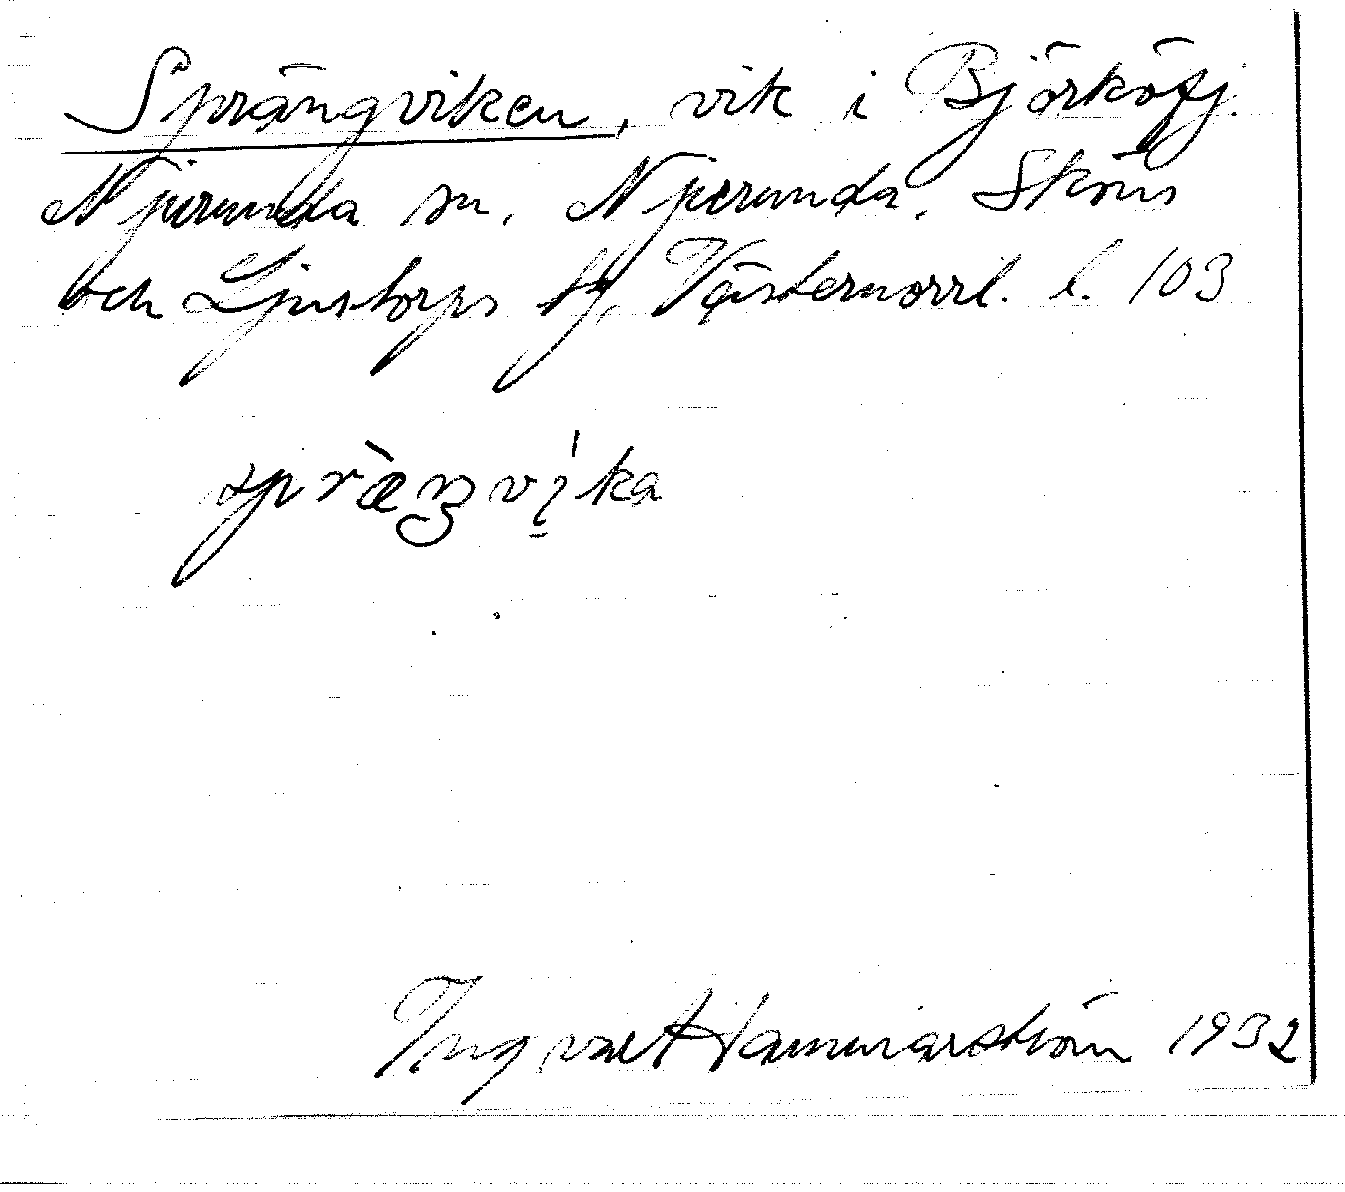 Sprängviken, vik i Björköfj.
Njurunda sn. Njurunda, Sköns
och Ljustorps tg, Västernorrl. l. 103
Ingvar Hammarström 1932